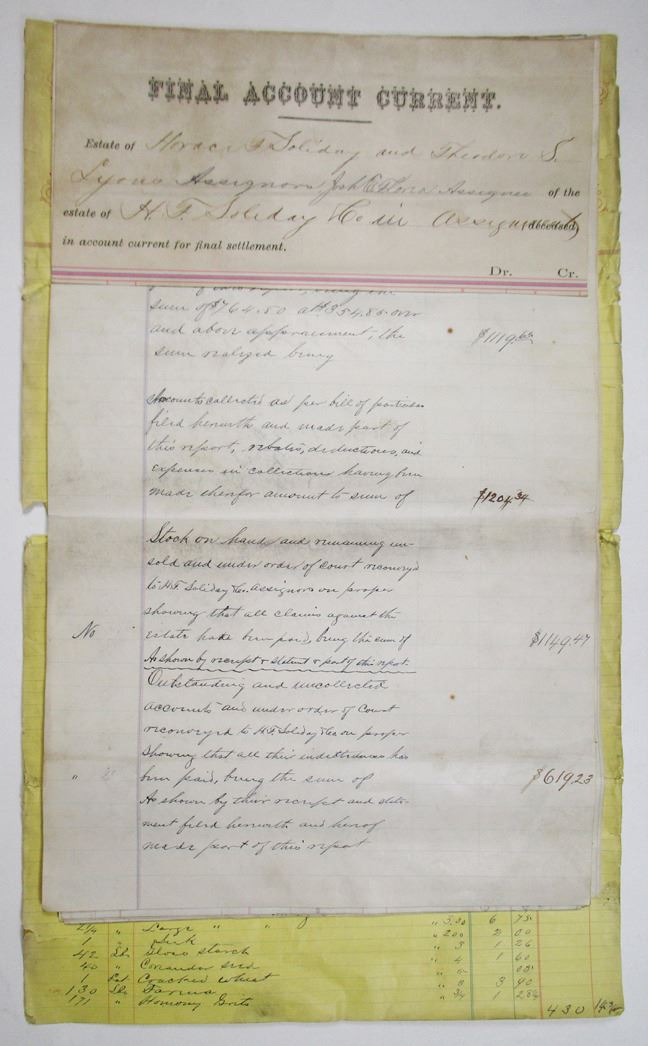 FINAL ACCOUNT CURRENT.
Estate of Horace F Soliday and Theodore S.
Lyons Assignors Assignee of the
estate of H. F. Soliday & Co in Assignment, deceased,
in account current for final settlement.
Dr. Cr.
sum of $764.80 at $354.85 over
and above appraisment, the $1119.65
sum realized being
Accounts collected as per bill of particulars
filed herewith and made part of
this report, rebates, deductions, and
expenses in collections having been
made therefor amount to sum of $1204.34
Stock on hand and remaining un-
sold and under order of Court reconveyd
to H.F. Soliday &Co. Assignors on proper
showing that all claims against the
No estate have been paid, being the sum of $1149.47
As shown by receipt & statmt & part of this report.
Outstanding and uncollected
accounts and under order of Court
reconveyed to H.F. Soliday &Co on proper
showing that all their indebtedness has
" been paid, being the sum of $619.23
As shown by their receipt and state-
ment filed herewith and hereof
made part of this report
2¼ " Large " " " 3.30 6 75
1 " " 200 2 00
42 Lbs Gloss Starch " 3 1 26
40 " Coriander seed " 4 1 60
1 Cracked wheat
130 Lbs Farina " 3 3 90
171 " Homony Grits " ¾ 1 28
430